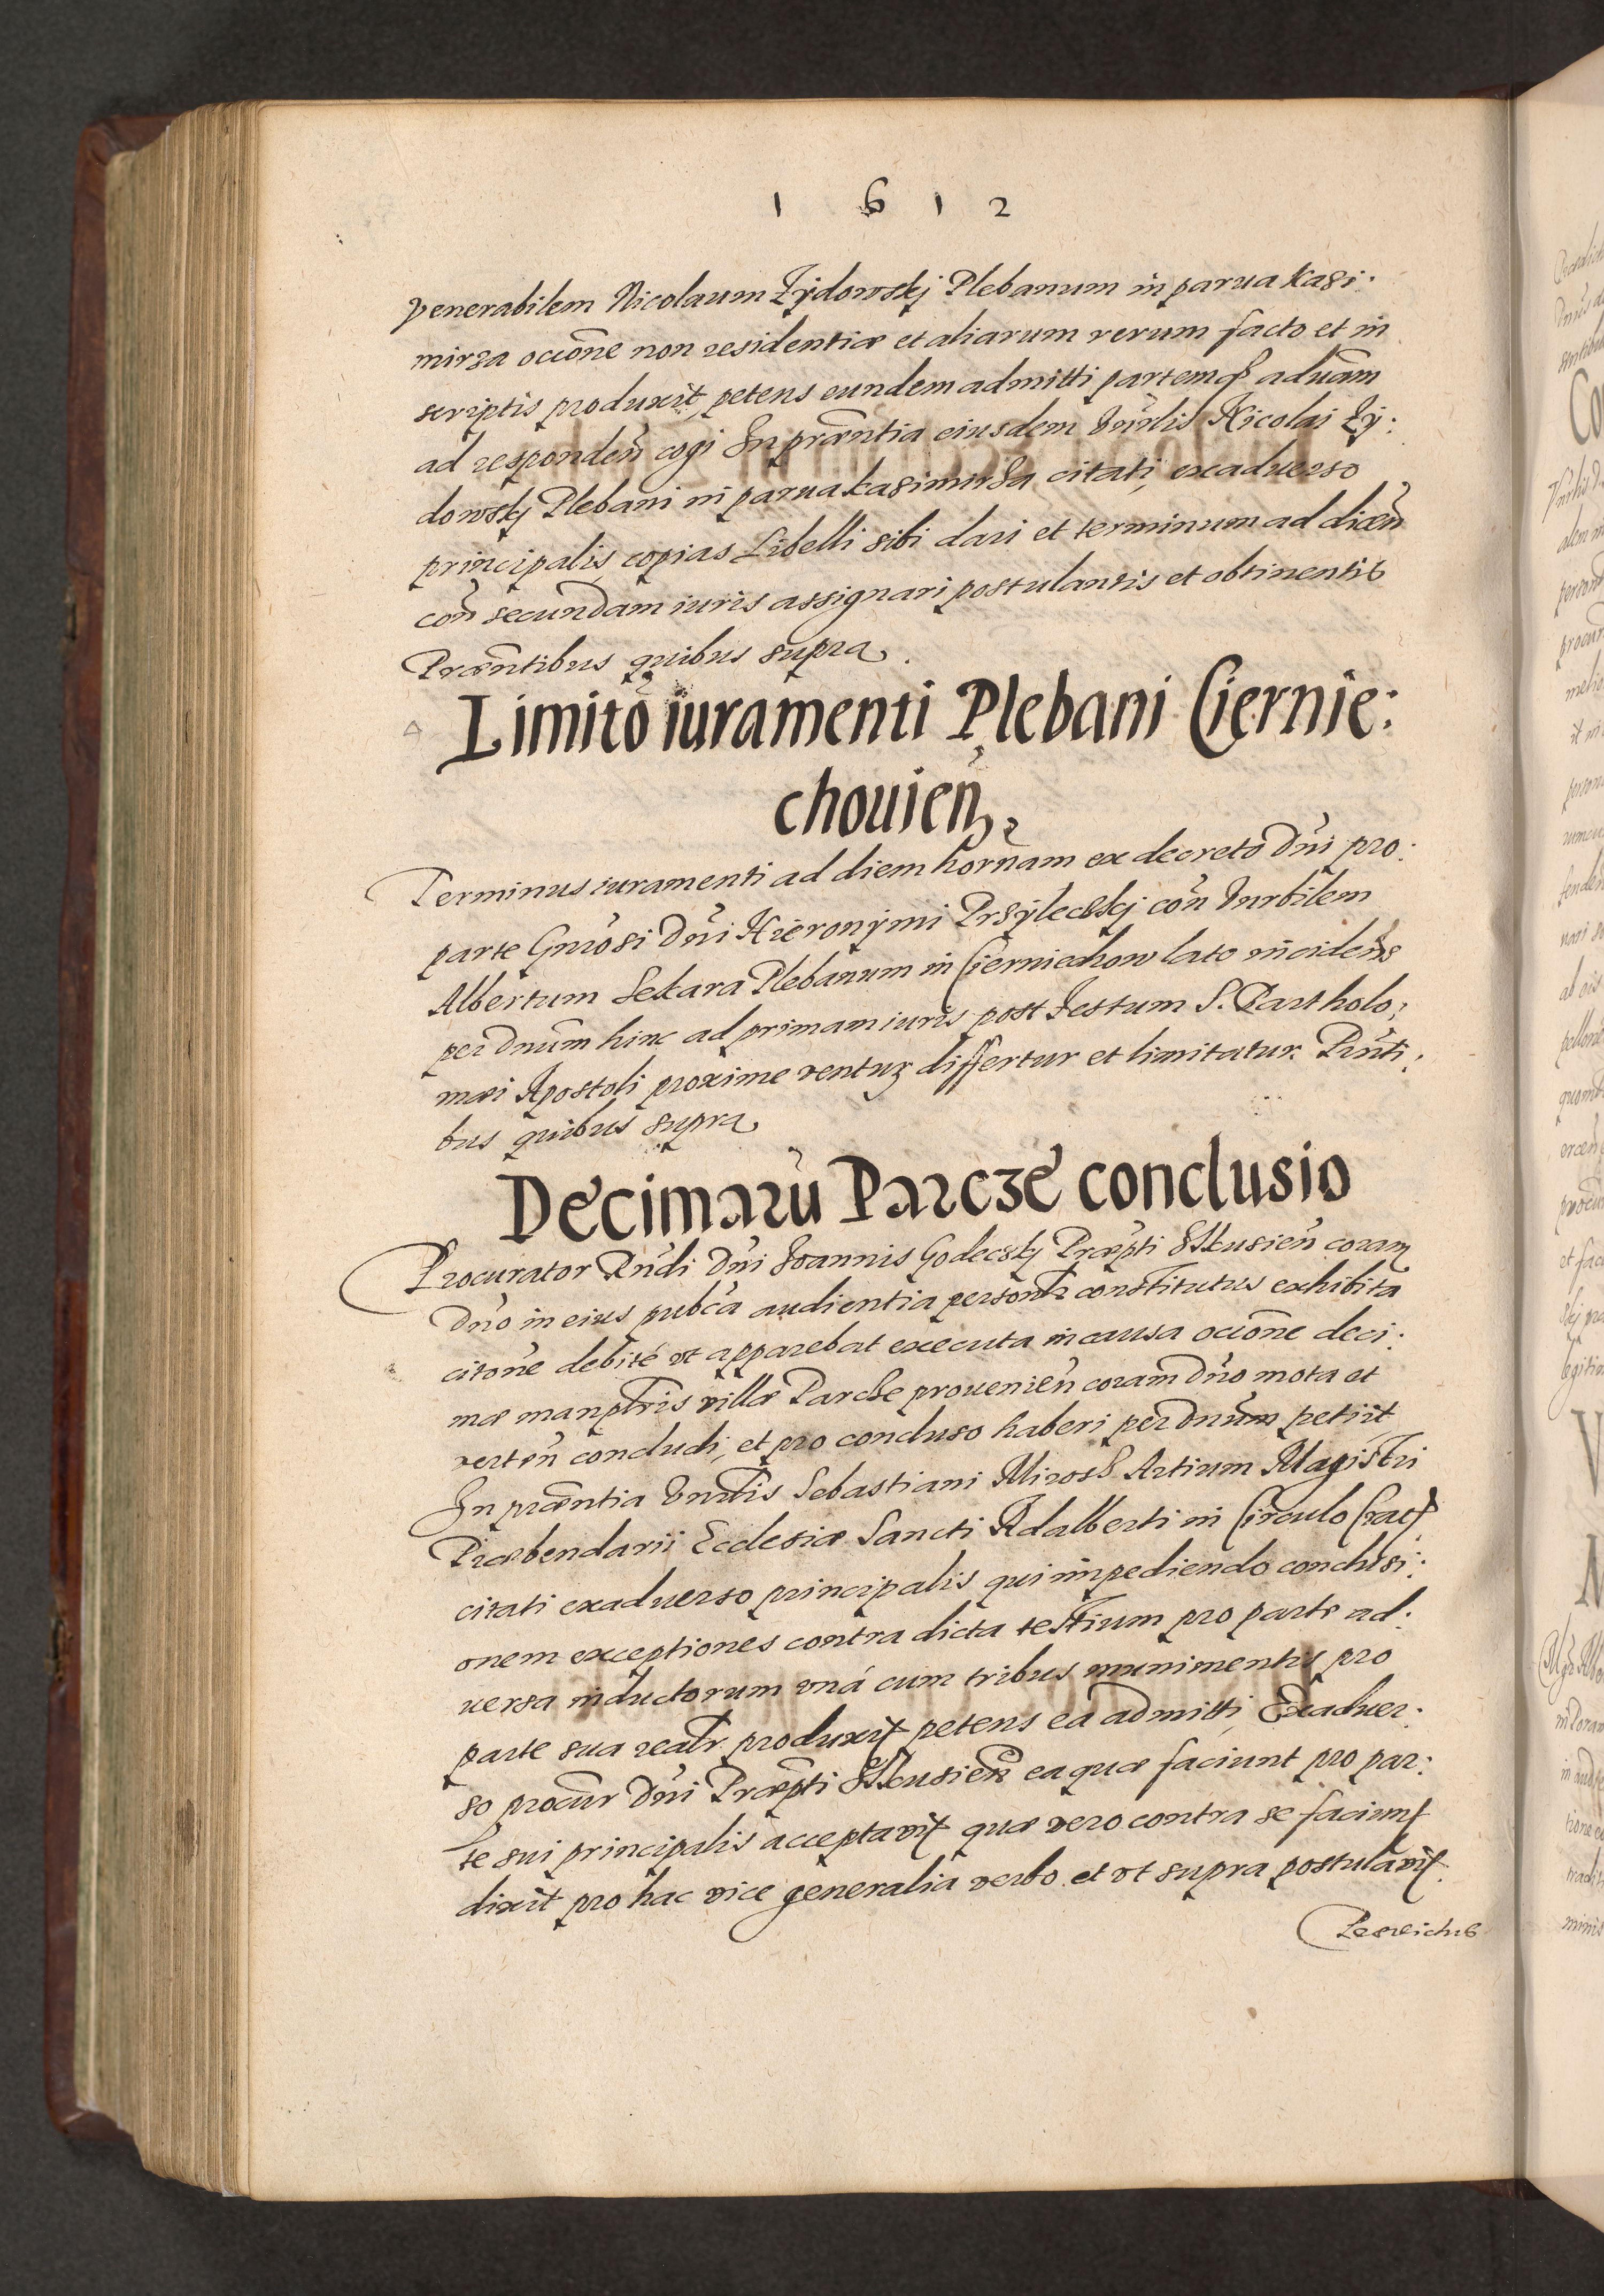 1 6 1 2
venerabilem Nicolaum Zÿdowskj Plebanum in parua Kazi:
mirza occõne non residentiæ et aliarum rerum facto et in
scriptis produxit, petens eundem admitti partemq aduãm
ad responden̄ cogi In præñtia eiusdem Vn̄rlis Nicolai Zÿ:
dowskj Plebani in parua kazimirza citati, exaduerso
principalis, copias Libelli sibi dari et terminum ad dicen̄
con̄ secundam iuris assignari postulantis et obtinentis
Præñtibus quibus supra.
Limitõ iuramenti Plebani Ciernie:
chouien̄
Terminus iuramenti ad diem horn̄am ex decreto Dn̄i pro
parte Gn̄rosi Dn̄i Hieronÿmi Przÿleczkj con̄ Vn̄rbilem
Albertum Sekara Plebanum in Cierniechow lato incidens
per Dn̄um hinc ad primam iuris post Festum S. Bartholo:
mæi Apostoli proxime ventuȝ differtur et limitatur. Prn̄ti:
bus quibus supra.
Decimarū Parcze conclusio
Procurator Rn̄di Dn̄i Joannis Godeczkj Præpti Ilkusien̄ coram
Dn̄o in eius pubca audientia personlr constitutus exhibita
citōne debité vt apparebat executa in causa occõne deci:
mæ manplris villæ Parcze prouenien̄ coram Dn̄o mota et
verten̄ concludi, et pro concluso haberi per Dn̄um petiit,
In præñtia Vn̄rlis Sebastiani Mirosz Artium Magistri
Præbendarii Ecclesiæ Sancti Adalberti in Circulo Crac
citati exaduerso principalis qui impediendo conclusi:
onem exceptiones contra dicta testium pro parte ad:
uersa inductorum vná cum tribus munimentis pro
parte sua realr produxit petens ea admitti, Exaduer:
so procur̄ Dn̄i Præpti Ilkusien̄ ea quæ faciunt pro par:
te sui principalis acceptavit quæ vero contra se faciunt
dixit pro hac vice generalia verbo et vt supra postulavit.